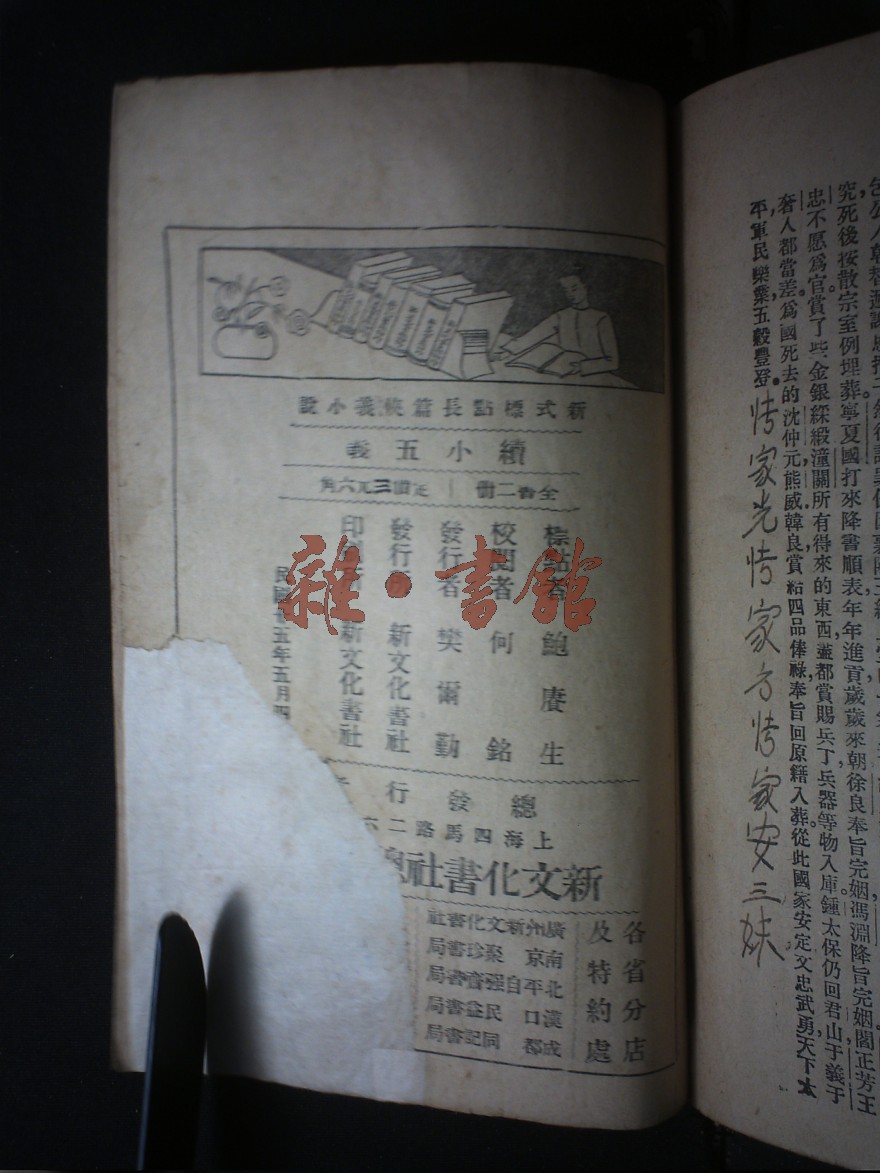 究死後按散宗室例埋葬寧夏國打來降書順表年年進貢歲歲來朝徐良奉旨完姻馮淵降旨完姻閻正芳王
忠不愿爲官賞了些金銀綵緞潼關所有得來的東西蓋都賞賜兵丁兵器等物入庫鍾太保仍回君山于義于
奢人都當差爲國死去的沈仲元熊威韓良賞給四品俸祿奉旨回原籍入葬從此國家安定文忠武勇天下太
平軍民樂業五穀豐登。
家光 家方 家安三妹
新式標點長篇俠義小說
續小五義
全書二冊 定價三元六角
標點者 鮑賡生
校閱者 何銘
發行者 樊爾勤
發行所 新文化書社
印刷者 新文化書社
民國廿五年五月四
總發行
上海四馬路二六
新文化書社總
各省分店
及特約處
廣州新文化書社
南京聚珍書局
北平自强齋書局
漢口民益書局
成都同記書局
雜·書館